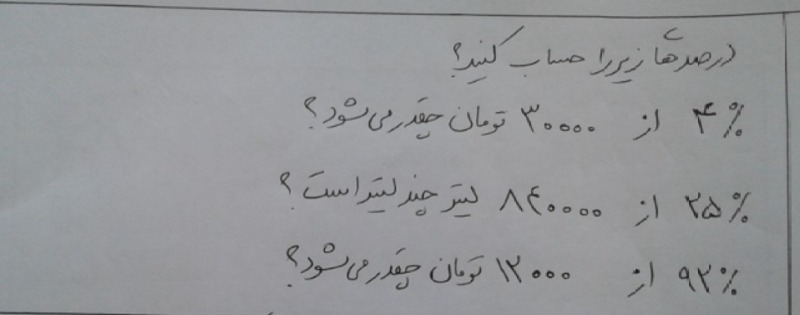 درصدهای زیر را حساب کنید؟
۴٪ از ۳۰۰۰۰ تومان چقدر می‌شود؟
۲۵٪ از ۸۴۰۰۰۰ لیتر چند لیتر است؟
۹۲٪ از ۱۲۰۰۰ تومان چقدر می‌شود؟